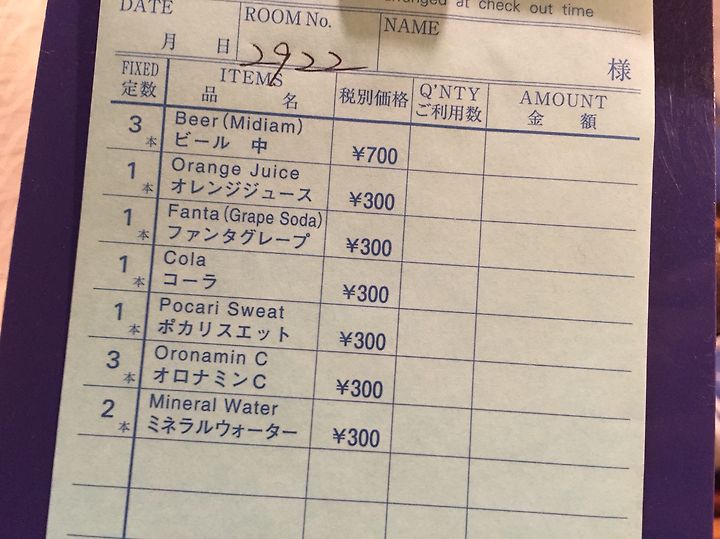 at check out time
DATE ROOM No. NAME
月 日 2922 様
FIXED ITEMS Q'NTY AMOUNT
定数 品 名 税別価格 ご利用数 金 額
3本 Beer(Midiam)
ビール 中 ¥700
1本 Orange Juice
オレンジジュース ¥300
1本 Fanta(Grape Soda)
ファンタグレープ ¥300
1本 Cola
コーラ ¥300
1本 Pocari Sweat
ポカリスエット ¥300
3本 Oronamin C
オロナミンC ¥300
2本 Mineral Water
ミネラルウォーター ¥300